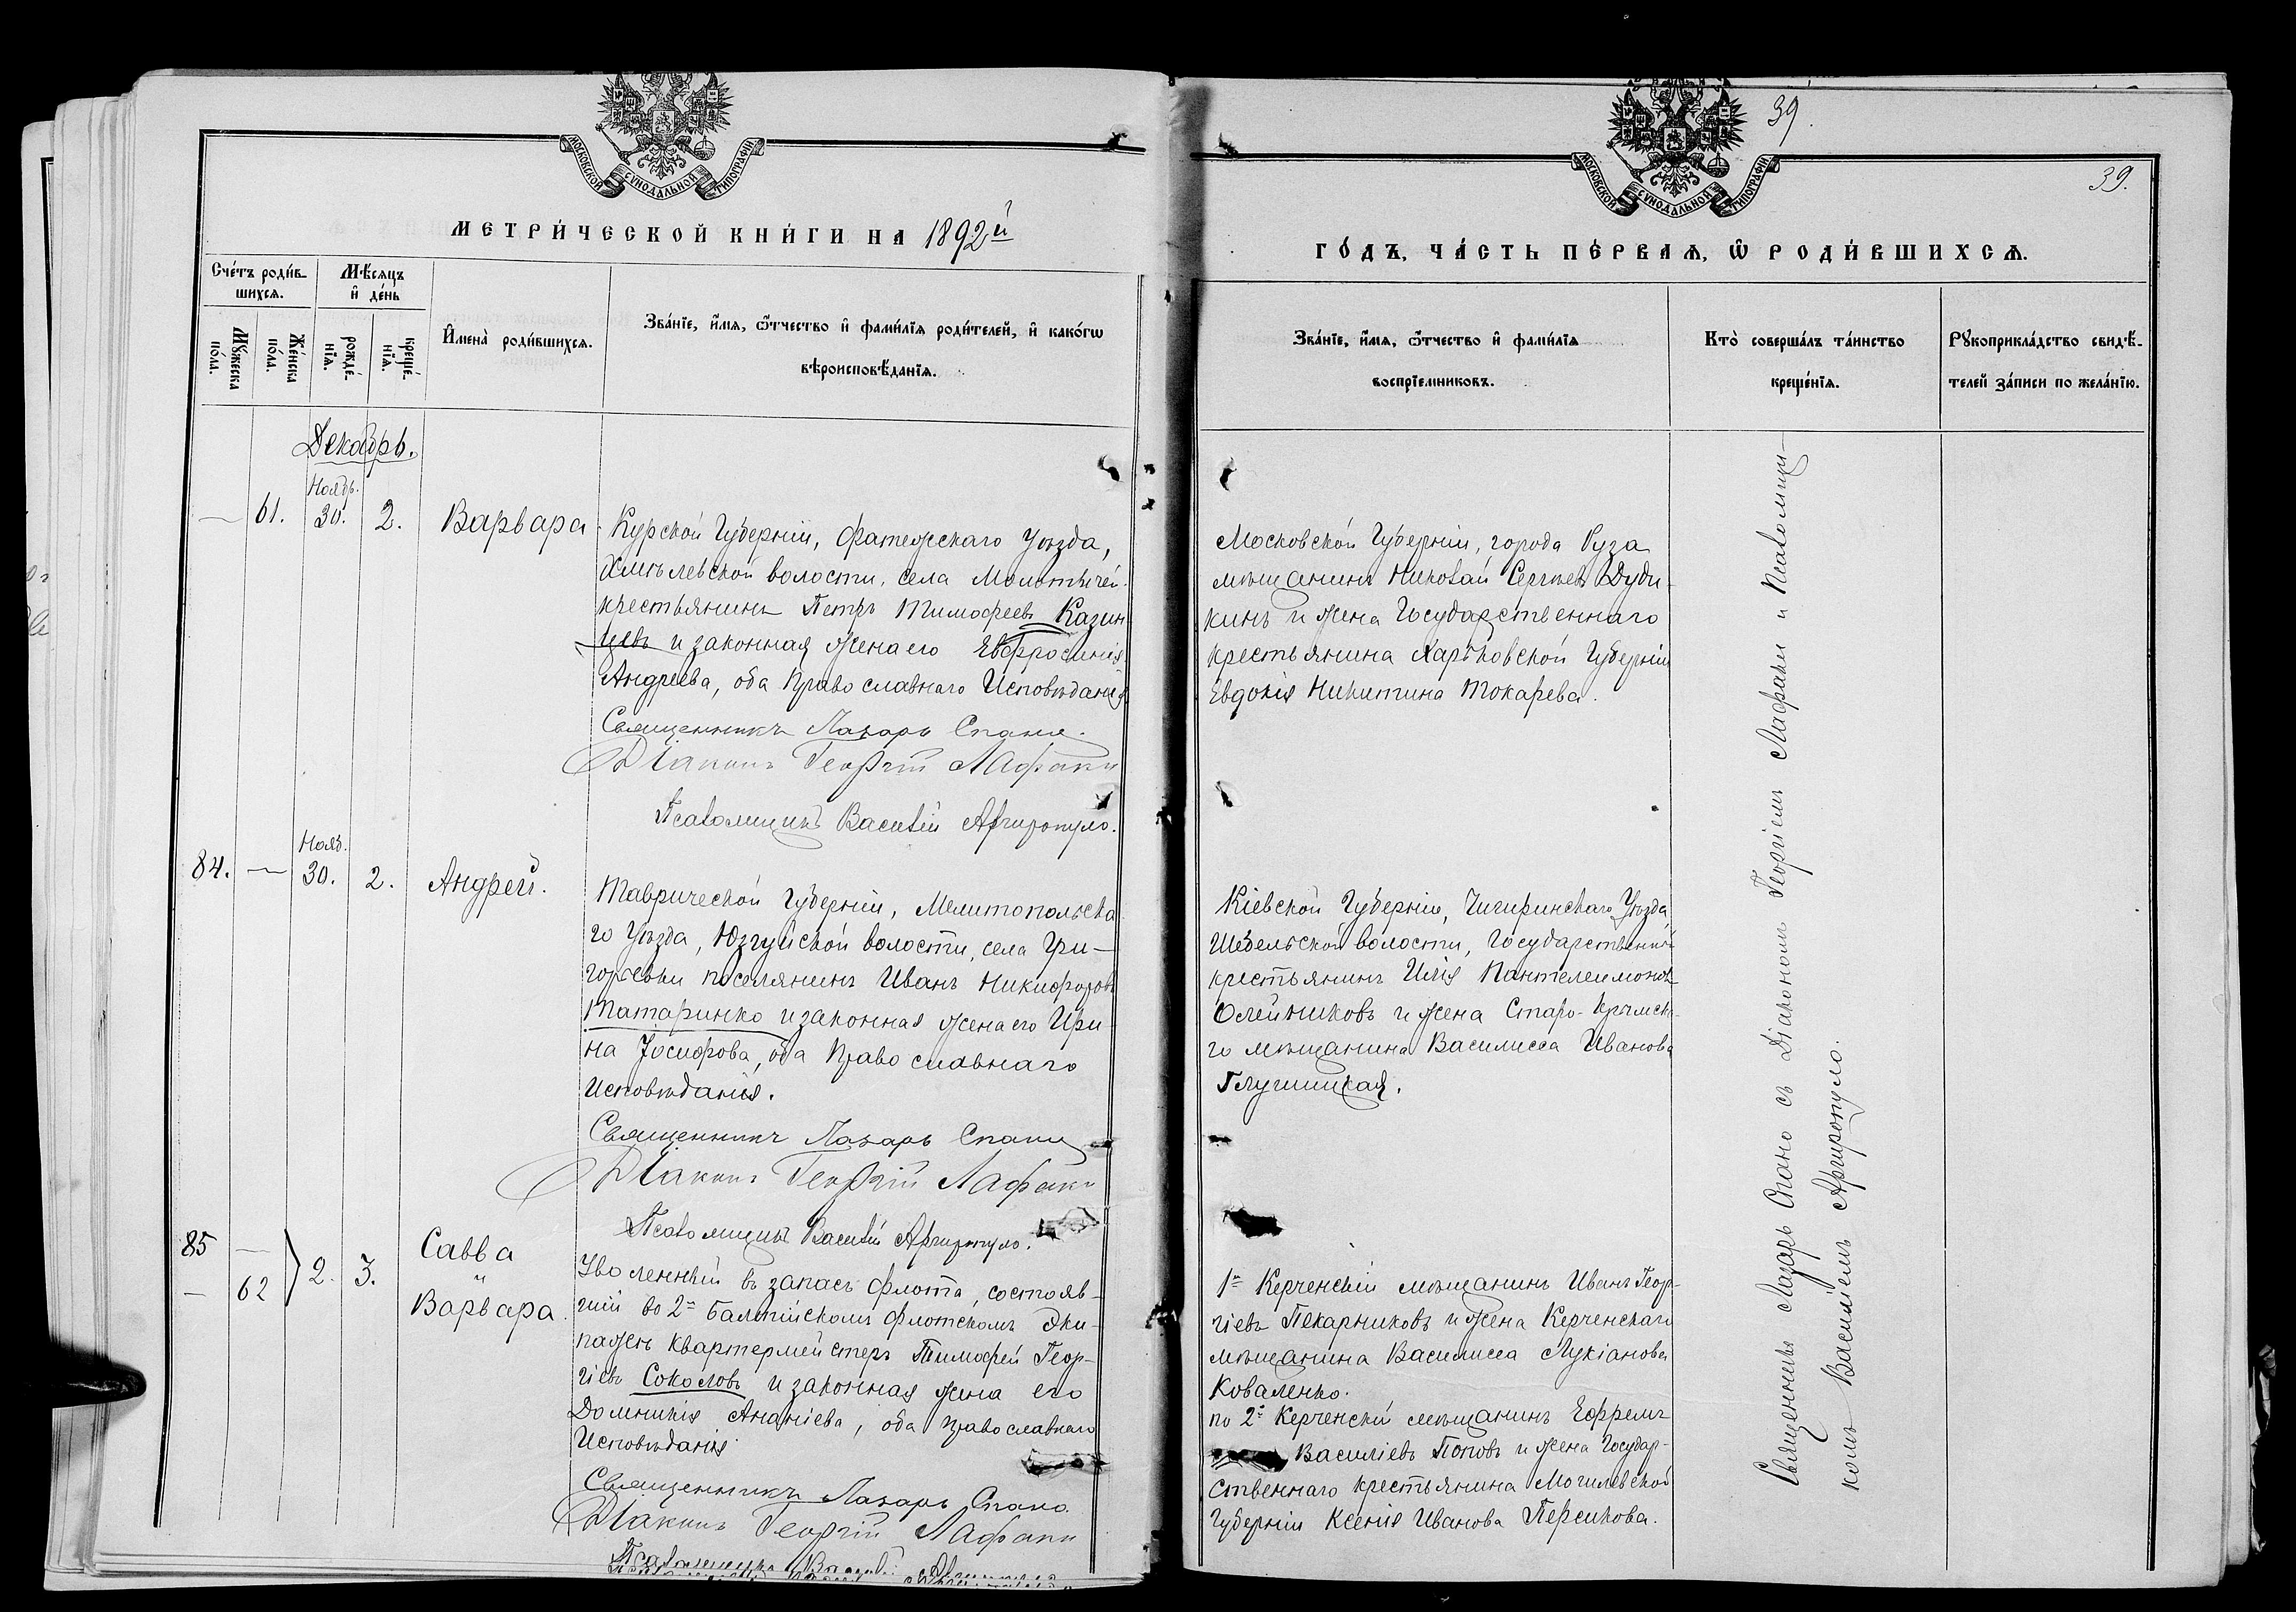 МОСКОВСКОЙ СѴНОДАЛЬНОЙ ТИПОГРАФІИ
МЕТРИ́ЧЕСКОЙ КНИ́ГИ НА 1892й
Сче́тъ роди́в-
шихсѧ.
Мꙋ́жеска
по́ла.
Же́нска
по́ла.
Мѣ́сѧцъ
и҆ де́нь
рожде́-
нїѧ.
креще́-
нїѧ.
И҆мена̀ роди́вшихсѧ.
Зва́нїе, и҆́мѧ, ѻ҆́тчество и҆ фами́лїѧ роди́телей, и҆ како́гѡ
вѣроисповѣ́данїѧ.
Декабрь.
—
61.
Ноябр.
30.
2.
Варвара
Курской Губерніи, Фатежскаго Уѣзда,
Хмѣлевской волости, села Молотычей
крестьянинъ Петръ Тимофеевъ Казин
цевъ и законная жена его Евфросинія
Андреева, оба Православнаго Исповѣданія
Священникъ Лазарь Спано.
Діаконъ Георгій Лафаки
Псаломщикъ Василій Аргиропуло.
84.
—
Нояб.
30.
2.
Андрей.
Таврической Губерніи, Мелитопольска
го Уѣзда, Юзгуйской волости, села Гри-
горьевки поселянинъ Иванъ Никифоровъ
Татаринко и законная жена его Ири
на Іосифова, оба Православнаго
Исповѣданія.
Священникъ Лазарь Спано
Діаконъ Георгій Лафаки
Псаломщикъ Василій Аргиропуло.
85
—
—
62
2.
3.
Савва
"
Варвара.
Уволенный въ запасъ флота, состояв-
шій во 2= Балтійскомъ флотскомъ Эки-
пажѣ Квартермейстеръ Тимофей Геор-
гіевъ Соколовъ и законная жена его
Домникія Ананіева, оба православнаго
Исповѣданія
Священникъ Лазарь Спано
Діаконъ Георгій Лафаки
Псаломщикъ Василій Аргиропуло
39.
МОСКОВСКОЙ СѴНОДАЛЬНОЙ ТИПОГРАФІИ
39.
ГО́ДЪ, ЧА́СТЬ ПЕ́РВАѦ, Ѡ҆ РОДИ́ВШИХСѦ.
Зва́нїе, и҆́мѧ, ѻ҆́тчество и҆ фами́лїѧ
воспрїе́мниковъ.
Кто̀ соверша́лъ та́инство
креще́нїѧ.
Рꙋкоприкла́дство свидѣ́-
телей за́писи по жела́нїю.
Московской Губерніи, города Руза
мѣщанинъ Николай Сергѣевъ Дуди-
кинъ и жена Государственнаго
крестьянина Харьковской Губерніи
Евдокія Никитина Токарева.
Кіевской Губерніи, Чигиринскаго Уѣзда
Шебельской волости, Государственный
крестьянинъ Илія Пантелеимоновъ
Олейниковъ и жена Старо-Крымска-
го мѣщанина Василисса Иванова
Глушицкая.
1= Керченскій мѣщанинъ Иванъ Геор-
гіевъ Пекарниковъ и жена Керченскаго
мѣщанина Василисса Лукіанова
Коваленко.
по 2= Керченскій мѣщанинъ Ефремъ
Василіевъ Поповъ и жена Государ-
ственнаго крестьянина Могилевской
Губерніи Ксенія Иванова Персикова.
Священникъ Лазарь Спано съ Діакономъ Георгіемъ Лафаки и Псаломщи-
комъ Василіемъ Аргиропуло.